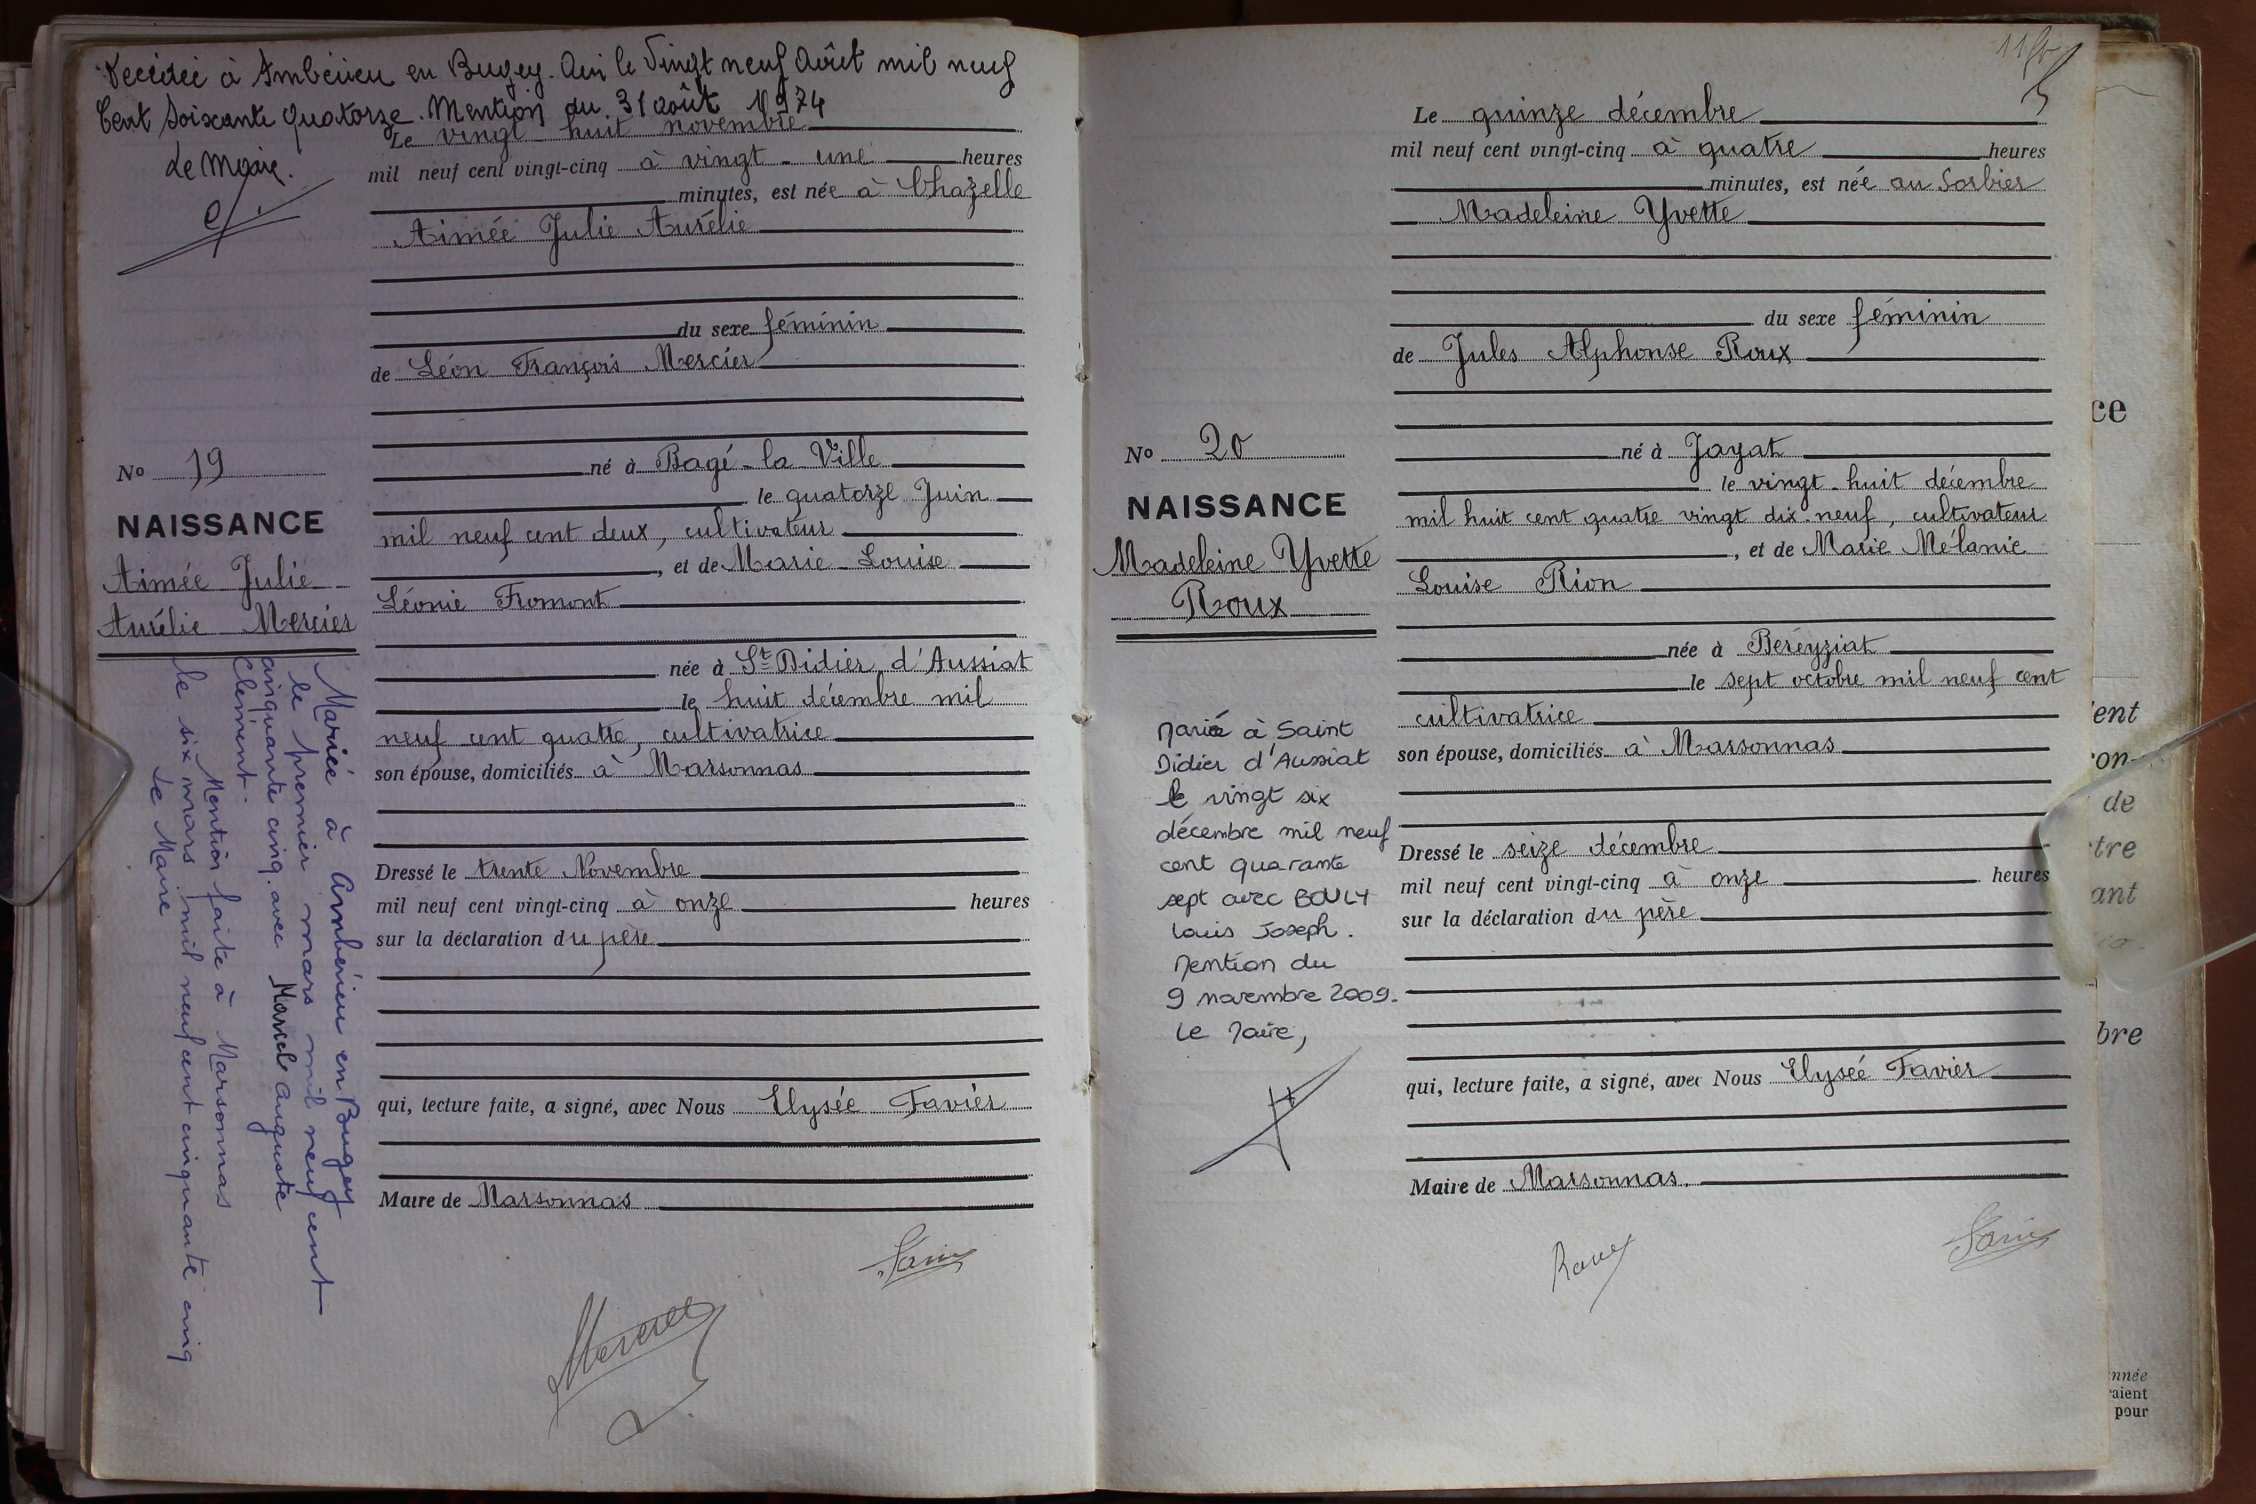 Décédée à Ambérieu en Bugey. Ain le Vingt neuf Août mil neuf
Cent Soixante Quatorze. Mention du 31 août 1974
Le Maire.
Le vingt-huit novembre
mil neuf cent vingt-cinq à vingt-une heures
minutes, est née à Chazelle
Aimée Julie Aurélie
du sexe féminin
de Léon François Mercier
né à Bagé-la Ville
le quatorze Juin
mil neuf cent deux, cultivateur
, et de Marie-Louise
Léonie Fromont
née à St Didier d'Aussiat
le huit décembre mil
neuf cent quatre, cultivatrice
son épouse, domiciliés à Marsonnas
Dressé le trente Novembre
mil neuf cent vingt-cinq à onze heures
sur la déclaration du père
qui, lecture faite, a signé, avec Nous Elysée Favier
Maire de Marsonnas
No 19
NAISSANCE
Aimée Julie
Aurélie Mercier
Mariée à Ambérieu en Bugey
le premier mars mil neuf cent
cinquante cinq. avec Marcel Auguste
Clément.
Mention faite à Marsonnas
le six mars mil neuf cent cinquante cinq
Le Maire
Mercier
Le quinze décembre
mil neuf cent vingt-cinq à quatre heures
minutes, est née au Sorbier
Madeleine Yvette
du sexe féminin
de Jules Alphonse Roux
né à Jayat
le vingt-huit décembre
mil huit cent quatre vingt dix-neuf, cultivateur
, et de Marie Mélanie
Louise Rion
née à Béréyziat
le sept octobre mil neuf cent
cultivatrice
son épouse, domiciliés à Marsonnas
Dressé le seize décembre
mil neuf cent vingt-cinq à onze heures
sur la déclaration du père
qui, lecture faite, a signé, avec Nous Elysée Favier
Maire de Marsonnas.
No 20
NAISSANCE
Madeleine Yvette
Roux
Mariée à Saint
Didier d'Aussiat
le vingt six
décembre mil neuf
cent quarante
sept avec BOULY
Louis Joseph.
Mention du
9 novembre 2009.
Le Maire,
Roux
ce
ent
on-
de
tre
ant
bre
nnée
aient
pour